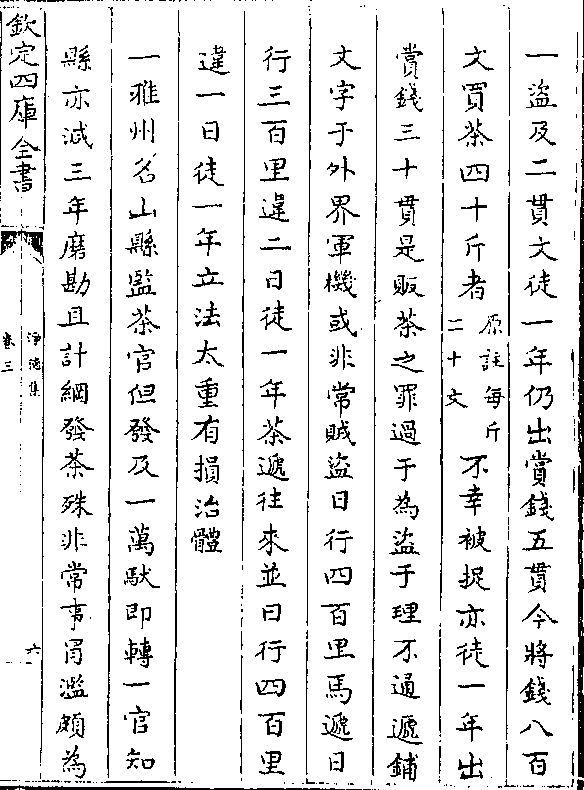 一盜及二貫文徒一年仍出賞錢五貫今將錢八百
文買茶四十斤者原註每斤二十文不幸被捉亦徒一年出
賞錢三十貫是販茶之罪過于為盜于理不通遞鋪
文字于外界軍機或非常賊盜日行四百里馬遞日
行三百里違二日徒一年茶遞往來並日行四百里
違一日徒一年立法太重有損治體
一雅州名山縣監茶官但發及一萬馱即轉一官知
縣亦減三年磨勘且計綱發茶殊非常事冐濫頗為
欽定四庫全書
淨德集
卷三
六